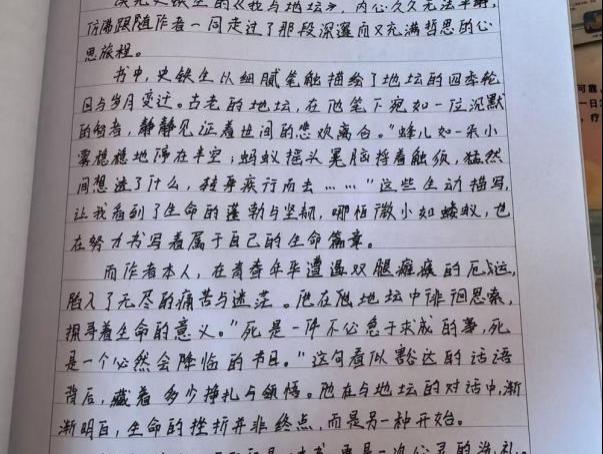 读完史铁生的《我与地坛》，内心久久无法平静，
仿佛跟随作者一同走过了那段深邃而又充满哲思的心
思旅程。
书中，史铁生以细腻笔触描绘了地坛的四季轮
回与岁月变迁。古老的地坛，在他笔下宛如一位沉默
的智者，静静见证着世间的悲欢离合。"蜂儿如一朵小
雾稳稳地停在半空；蚂蚁摇头晃脑捋着触须，猛然
间想透了什么，转身疾行而去……"这些生动描写，
让我看到了生命的蓬勃与坚韧，哪怕微小如蝼蚁，也
在努力书写着属于自己的生命篇章。
而作者本人，在青春年华遭遇双腿瘫痪的厄运，
陷入了无尽的痛苦与迷茫。他在地坛中徘徊思索，
探寻着生命的意义。"死是一件不必急于求成的事，死
是一个必然会降临的节日。"这句看似豁达的话语
背后，藏着多少挣扎与领悟。他在与地坛的对话中，渐
渐明白，生命的挫折并非终点，而是另一种开始。
更是一次心灵的洗礼。